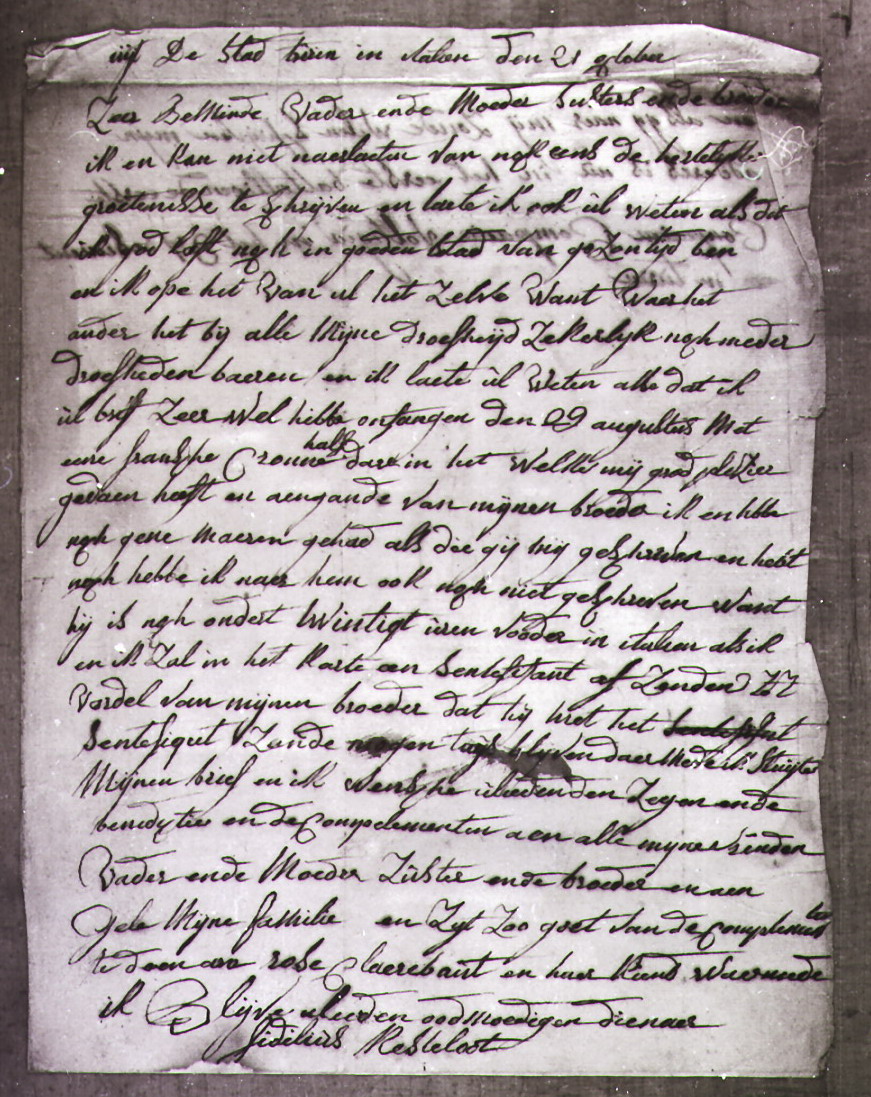 uijt De Stad turen in italien den 21 october
Zeer Beminde Vader ende Moeder Susters ende broeder
ik en kan niet naerlaeten van nogh eens de hertelijke
groetenisse te schrijven en laete ik ook ul weten als dat
ik god loff nogh in goeden stad van gezontijd ben
en ik ope het Van ul het Zelve Want Waer het
ander het bij alle Mijne droefheijd Zekerlijk nogh meder
droefheden baeren en ik laete ul Weten alse dat ik
ul brif Zeer wel hebbe ontfangen den 29 augustus Met
eene franshe Cronne half daer in het welke mij grod plezier
gedaen heeft en aengande van mijnen broeder ik en hbbe
nogh gene maeren gehad als die gij mij geschreven en hebt
nogh hebbe ik naer hem ook nogh niet geschreven want
hij is nogh ondert twintigt uren voorder in italien als ik
en ik Zal in het korte een Sentefikant af Zenden
Vordel van mijnen broeder dat hij met het
Sentefiqut Zoude mogen tuijs blijven daer mede ik Sluijte
Mijnen brief en ik wenshe ulieden den Zegen ende
benedytie en de Complementen aen alle mijne vrinden
Vader ende Moeder Zuster ende broeder en aen
Gele Mijne familie en Zyt Zoo goet van de complementen
te doen aen rose Claerebaut en haer kind Waermede
ik Blijve ulieden oodmoedigen dienaer
fidelius Kesteloot